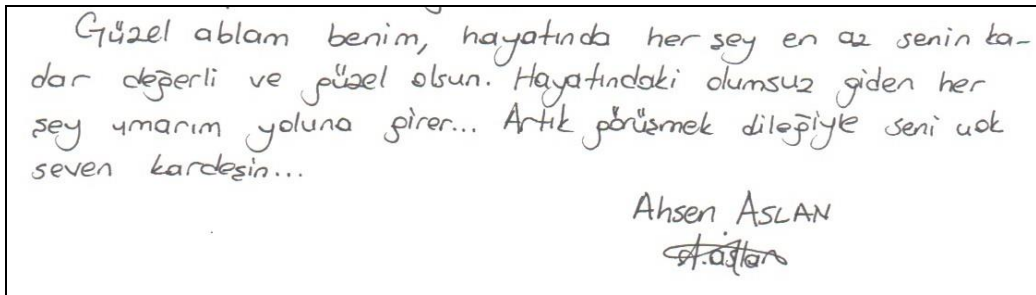 Güzel ablam benim, hayatında her şey en az senin ka-
dar değerli ve güzel olsun. Hayatındaki olumsuz giden her
şey umarım yoluna girer... Artık görüşmek dileğiyle seni çok
seven kardeşin...
Ahsen ASLAN
A.aslan